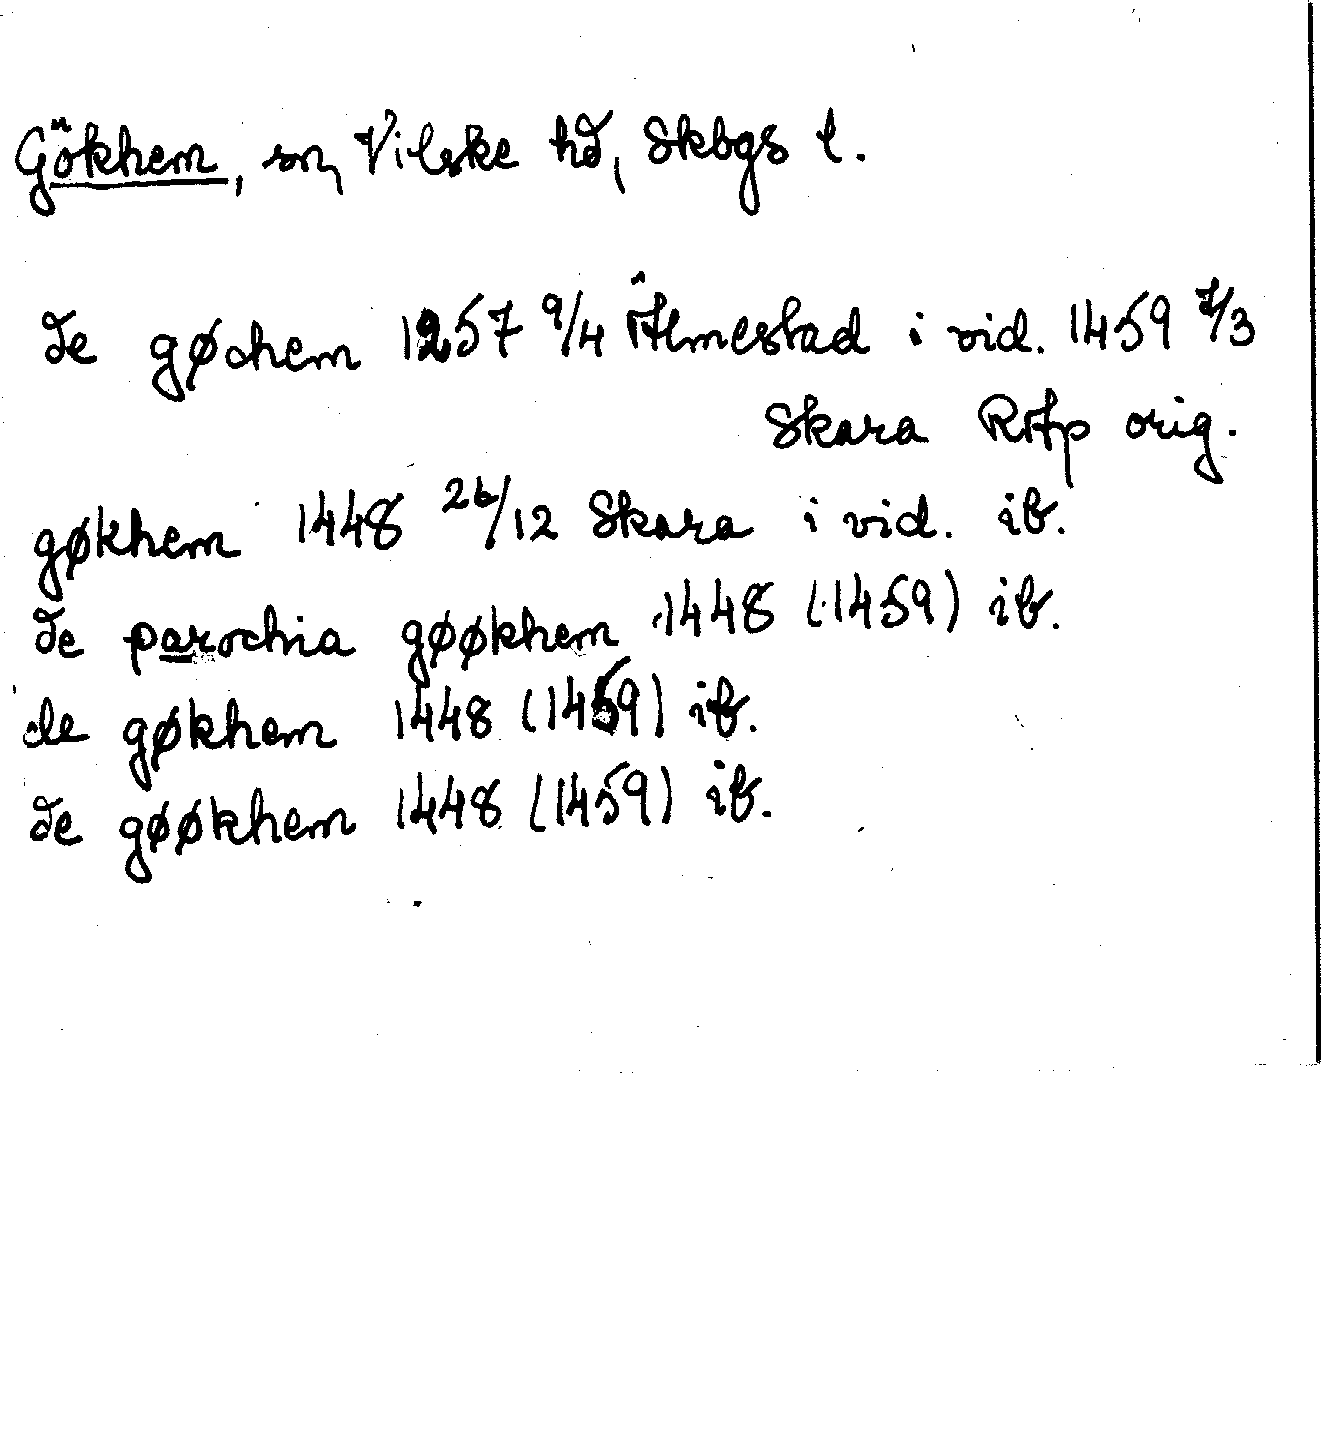 Gökhem, sn, Vilske hd, Skbgs l.
de gøchem 1257 9/4 Älmestad i vid. 1459 7/3
Skara RAp orig.
gøkhem 1448 26/12 Skara i vid. ib.
de parochia gøøkhem 1448 (1459) ib.
de gøkhem 1448 (1459) ib.
de gøøkhem 1448 (1459) ib.